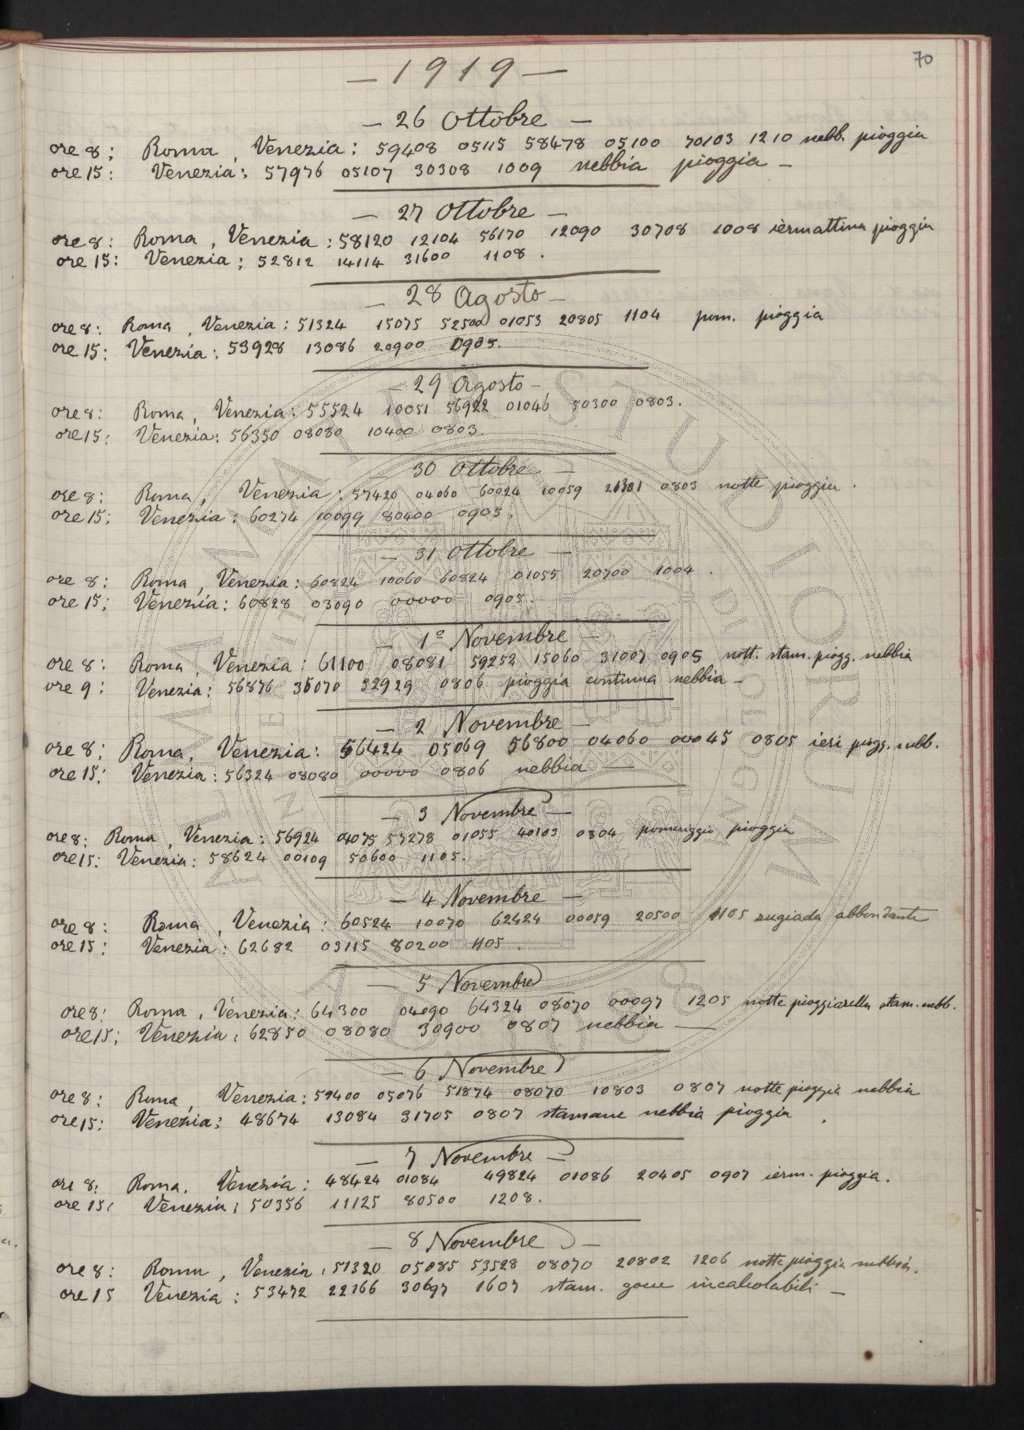 70
— 1919 —
— 26 Ottobre —
ore 8: Roma, Venezia: 59408 05115 58478 05100 70103 1210 nebb. pioggia
ore 15: Venezia: 57976 05107 30308 1009 nebbia pioggia —
— 27 Ottobre —
ore 8: Roma, Venezia: 58120 12104 56170 12090 30708 1008 iermattina pioggia
ore 15: Venezia: 52812 14114 31600 1108.
— 28 Agosto —
ore 8: Roma, Venezia: 51324 15075 52500 01053 20805 1104 pom. pioggia
ore 15: Venezia: 53928 13086 20900 0905.
— 29 Agosto —
ore 8: Roma, Venezia: 55524 10051 56922 01046 50300 0803.
ore 15: Venezia: 56350 08080 10400 0803.
30 Ottobre —
ore 8: Roma, Venezia: 57420 04060 60024 10059 0803 notte pioggia.
ore 15: Venezia: 60274 10099 80400 0905.
— 31 Ottobre —
ore 8: Roma, Venezia: 60824 10060 60824 01055 20700 1004.
ore 15: Venezia: 60828 03090 00000 0905.
— 1º Novembre —
ore 8: Roma, Venezia: 61100 08081 59252 15060 31007 0905 nott. stam. piogg. nebbia
ore 9: Venezia: 56876 36070 52929 0806 pioggia continua nebbia —
— 2 Novembre —
ore 8: Roma, Venezia: 56424 05069 56800 04060 00045 0805 ieri piogg. nebb.
ore 15: Venezia: 56324 08080 00000 0806 nebbia —
— 3 Novembre —
ore 8: Roma, Venezia: 56924 04075 57278 01055 40103 0804 pomeriggio pioggia
ore 15: Venezia: 58624 00109 50600 1105.
— 4 Novembre —
ore 8: Roma, Venezia: 60524 10070 62424 00059 20500 1105 rugiada abbondante
ore 15: Venezia: 62682 03115 80200 1105.
— 5 Novembre
ore 8: Roma, Venezia: 64300 04090 64324 08070 00097 1205 notte pioggiarella stam. nebb.
ore 15: Venezia: 62850 08080 30900 0807 nebbia —
— 6 Novembre
ore 8: Roma, Venezia: 59400 05076 51874 08070 10803 0807 notte pioggia nebbia
ore 15: Venezia: 48674 13084 31705 0807 stamane nebbia pioggia.
— 7 Novembre —
ore 8: Roma. Venezia: 48424 01084 49824 01086 20405 0907 ierm. pioggia.
ore 15: Venezia: 50356 11125 80500 1208.
— 8 Novembre —
ore 8: Roma, Venezia: 51320 05085 53528 08070 20802 1206 notte pioggia nebbia.
ore 15 Venezia: 53472 22166 30697 1607 stam. incalcolabili —
ALMA MATER STUDIORUM
A.D. 1088